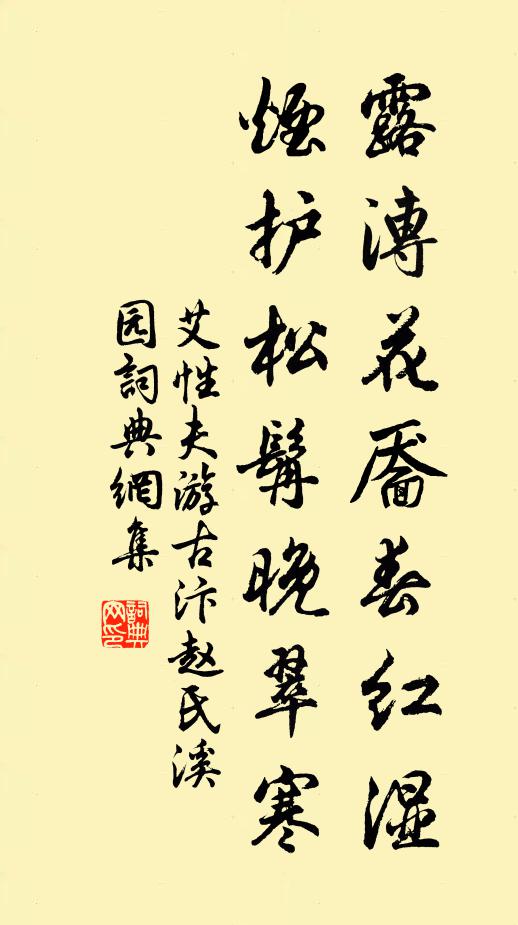 露溥花靥春红湿
煙护松髯晚翠寒
艾性夫游古汴赵氏溪
园詞典網集
詞典
网印